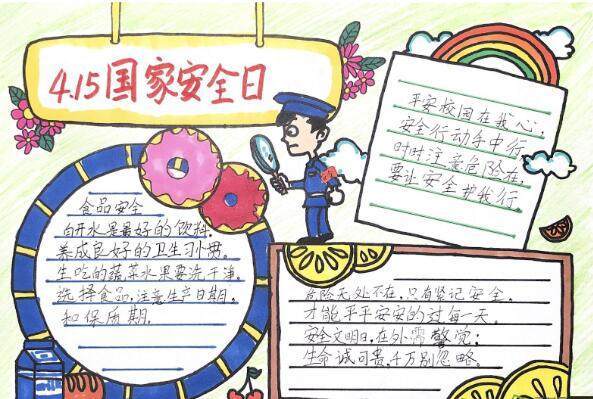 4.15国家安全日
平安校园在我心;
安全行动手中行,
时时注意危险在,
要让安全护我行.
食品安全
白开水果最好的饮料.
养成良好的卫生习惯.
生吃的蔬菜水果要洗干净.
选择食品,注意生产日期.
和保质期.
危险无处不在,只有紧记安全.
才能平平安安的过每一天.
安全文明日,在外需警觉;
生命诚可贵,千万别忽略.